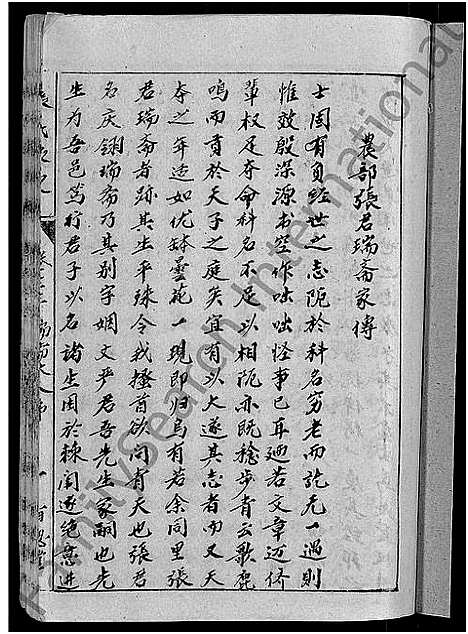 農部張君瑞斋家傳
士固有負經世之志阨於科名窮老而訖无一遇則
惟效殷深源书空作咄咄怪事已耳廼若文章迈侪
輩权足夺命科名不足以相阨亦既捻步青云歌鹿
鳴而貢於天子之庭矣宜有以大遂其志者而又天
夺之年適如优缽曇花一現即归烏有若余同里張
君瑞斋者跡其生平殊令我搔首欲问有天也張君
名庆翎瑞斋乃其别字姻丈严君吾先生家嗣也先
生为吾邑笃行君子以名诸生困於棘闱遂绝意進
FamilySearch International